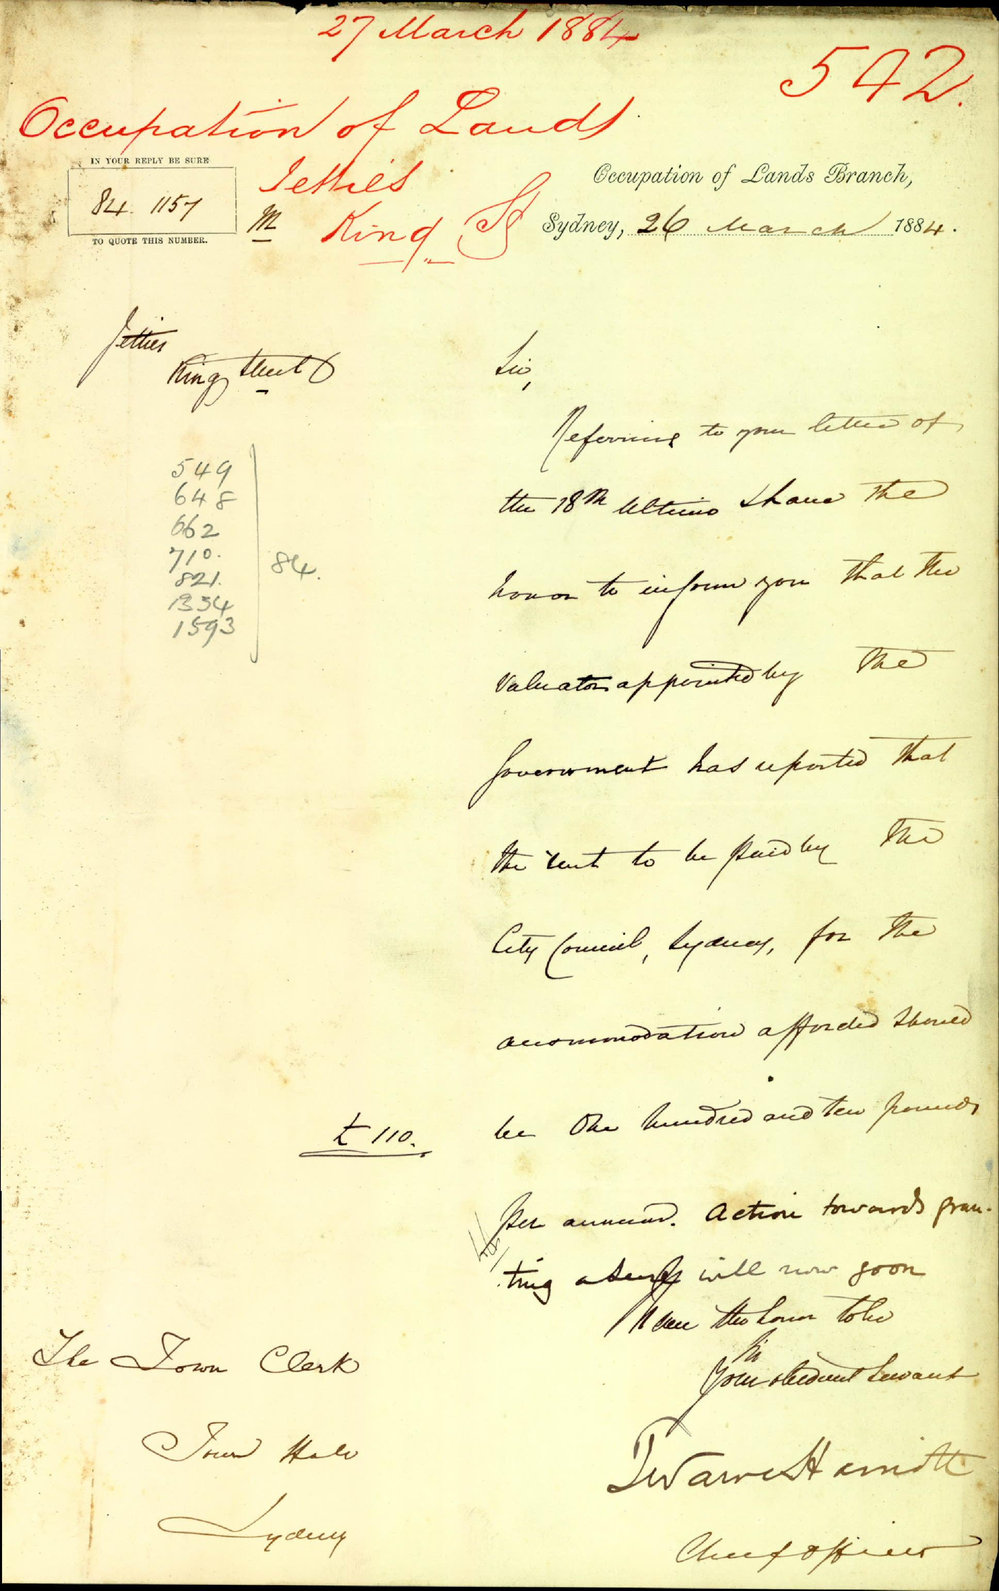 27 March 1884
542.
Occupation of Lands
Jetties
King St
IN YOUR REPLY BE SURE
84. 1157
TO QUOTE THIS NUMBER.
M
Occupation of Lands Branch,
Sydney, 26 March 1884.
Jetties
King Street
549
648
662
710.
821.
1334
1593
84.
Sir,
Referring to your letter of
the 18th Ultimo I have the
honor to inform you that the
Valuator appointed by the
Government has reported that
the rent to be paid by the
City Council, Sydney, for the
accommodation afforded should
be One hundred and ten pounds
£110.
per annum. Action towards gran-
ting a will now soon
I have the honor to be
Sir
Your obedient Servant
Chief Officer
The Town Clerk
Town Hall
Sydney